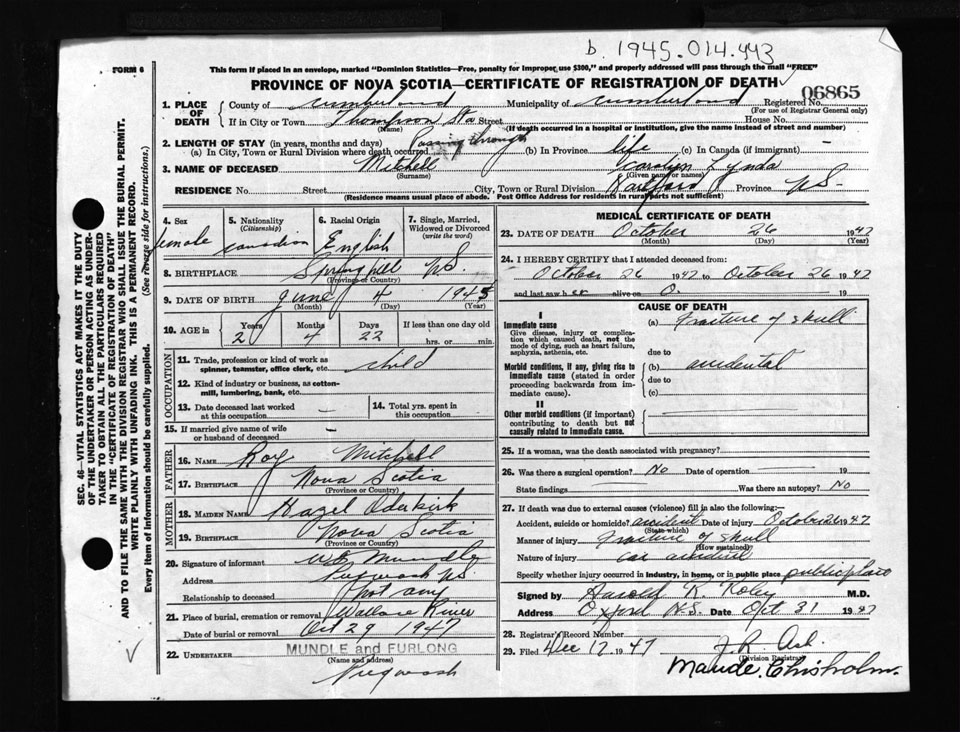 b. 1945.014.443
FORM 6
This form if placed in an envelope, marked "Dominion Statistics—Free, penalty for improper use $300," and properly addressed will pass through the mail "FREE"
PROVINCE OF NOVA SCOTIA—CERTIFICATE OF REGISTRATION OF DEATH
06865
1. PLACE OF DEATH County of Cumberland Municipality of Cumberland Registered No.
(For use of Registrar General only)
If in City or Town Thompson Sta Street House No.
(Name) (If death occurred in a hospital or institution, give the name instead of street and number)
2. LENGTH OF STAY (in years, months and days)
(a) In City, Town or Rural Division where death occurred Passing through (b) In Province life (c) In Canada (if immigrant) —
3. NAME OF DECEASED Mitchell Carolyn Lynda
(Surname) (Given name or names)
RESIDENCE No. Street City, Town or Rural Division Province NS-
(Residence means usual place of abode. Post Office Address for residents in rural parts not sufficient)
4. Sex female
5. Nationality (Citizenship) Canadian
6. Racial Origin English
7. Single, Married, Widowed or Divorced (write the word)
8. BIRTHPLACE Springhill NS.
(Province or Country)
9. DATE OF BIRTH June 4 1945
(Month) (Day) (Year)
10. AGE in Years 2 Months 4 Days 22 If less than one day old hrs. or min.
OCCUPATION
11. Trade, profession or kind of work as spinner, teamster, office clerk, etc. child
12. Kind of industry or business, as cotton-mill, lumbering, bank, etc.
13. Date deceased last worked at this occupation —
14. Total yrs. spent in this occupation
15. If married give name of wife or husband of deceased —
FATHER
16. NAME Roy Mitchell
17. BIRTHPLACE Nova Scotia
(Province or Country)
MOTHER
18. MAIDEN NAME Hazel Oderkirk
19. BIRTHPLACE Nova Scotia
(Province or Country)
20. Signature of informant Mundle
Address Pugwash NS
Relationship to deceased not any
21. Place of burial, cremation or removal Wallace River
Date of burial or removal Oct 29 1947
22. UNDERTAKER MUNDLE and FURLONG
(Name and address)
Pugwash
MEDICAL CERTIFICATE OF DEATH
23. DATE OF DEATH October 26 1947
(Month) (Day) (Year)
24. I HEREBY CERTIFY that I attended deceased from:
October 26 1947 to October 26 1947
and last saw her alive on 0. 19
CAUSE OF DEATH
I
Immediate cause
Give disease, injury or complication which caused death, not the mode of dying, such as heart failure, asphyxia, asthenia, etc.
(a) fracture of skull
due to
Morbid conditions, if any, giving rise to immediate cause (stated in order proceeding backwards from immediate cause).
(b) accidental
due to
(c)
II
Other morbid conditions (if important) contributing to death but not causally related to immediate cause.
25. If a woman, was the death associated with pregnancy?
26. Was there a surgical operation? No Date of operation 19
State findings Was there an autopsy? No
27. If death was due to external causes (violence) fill in also the following:—
Accident, suicide or homicide? accident Date of injury October 26 1947
(State which)
Manner of injury fracture of skull
(How sustained)
Nature of injury car accident
Specify whether injury occurred in industry, in home, or in public place public place
Signed by Harold R. M.D.
Address Oxford N.S. Date Oct 31 1947
28. Registrar's Record Number
29. Filed Dec 12 1947 J. R. Ash
(Division Registrar)
Maude. Chisholm.
SEC. 46—VITAL STATISTICS ACT MAKES IT THE DUTY
OF THE UNDERTAKER OR PERSON ACTING AS UNDER-
TAKER TO OBTAIN ALL THE PARTICULARS REQUIRED
IN THE "CERTIFICATE OF REGISTRATION OF DEATH"
AND TO FILE THE SAME WITH THE DIVISION REGISTRAR WHO SHALL ISSUE THE BURIAL PERMIT.
WRITE PLAINLY WITH UNFADING INK. THIS IS A PERMANENT RECORD.
Every item of Information should be carefully supplied. (See reverse side for instructions.)